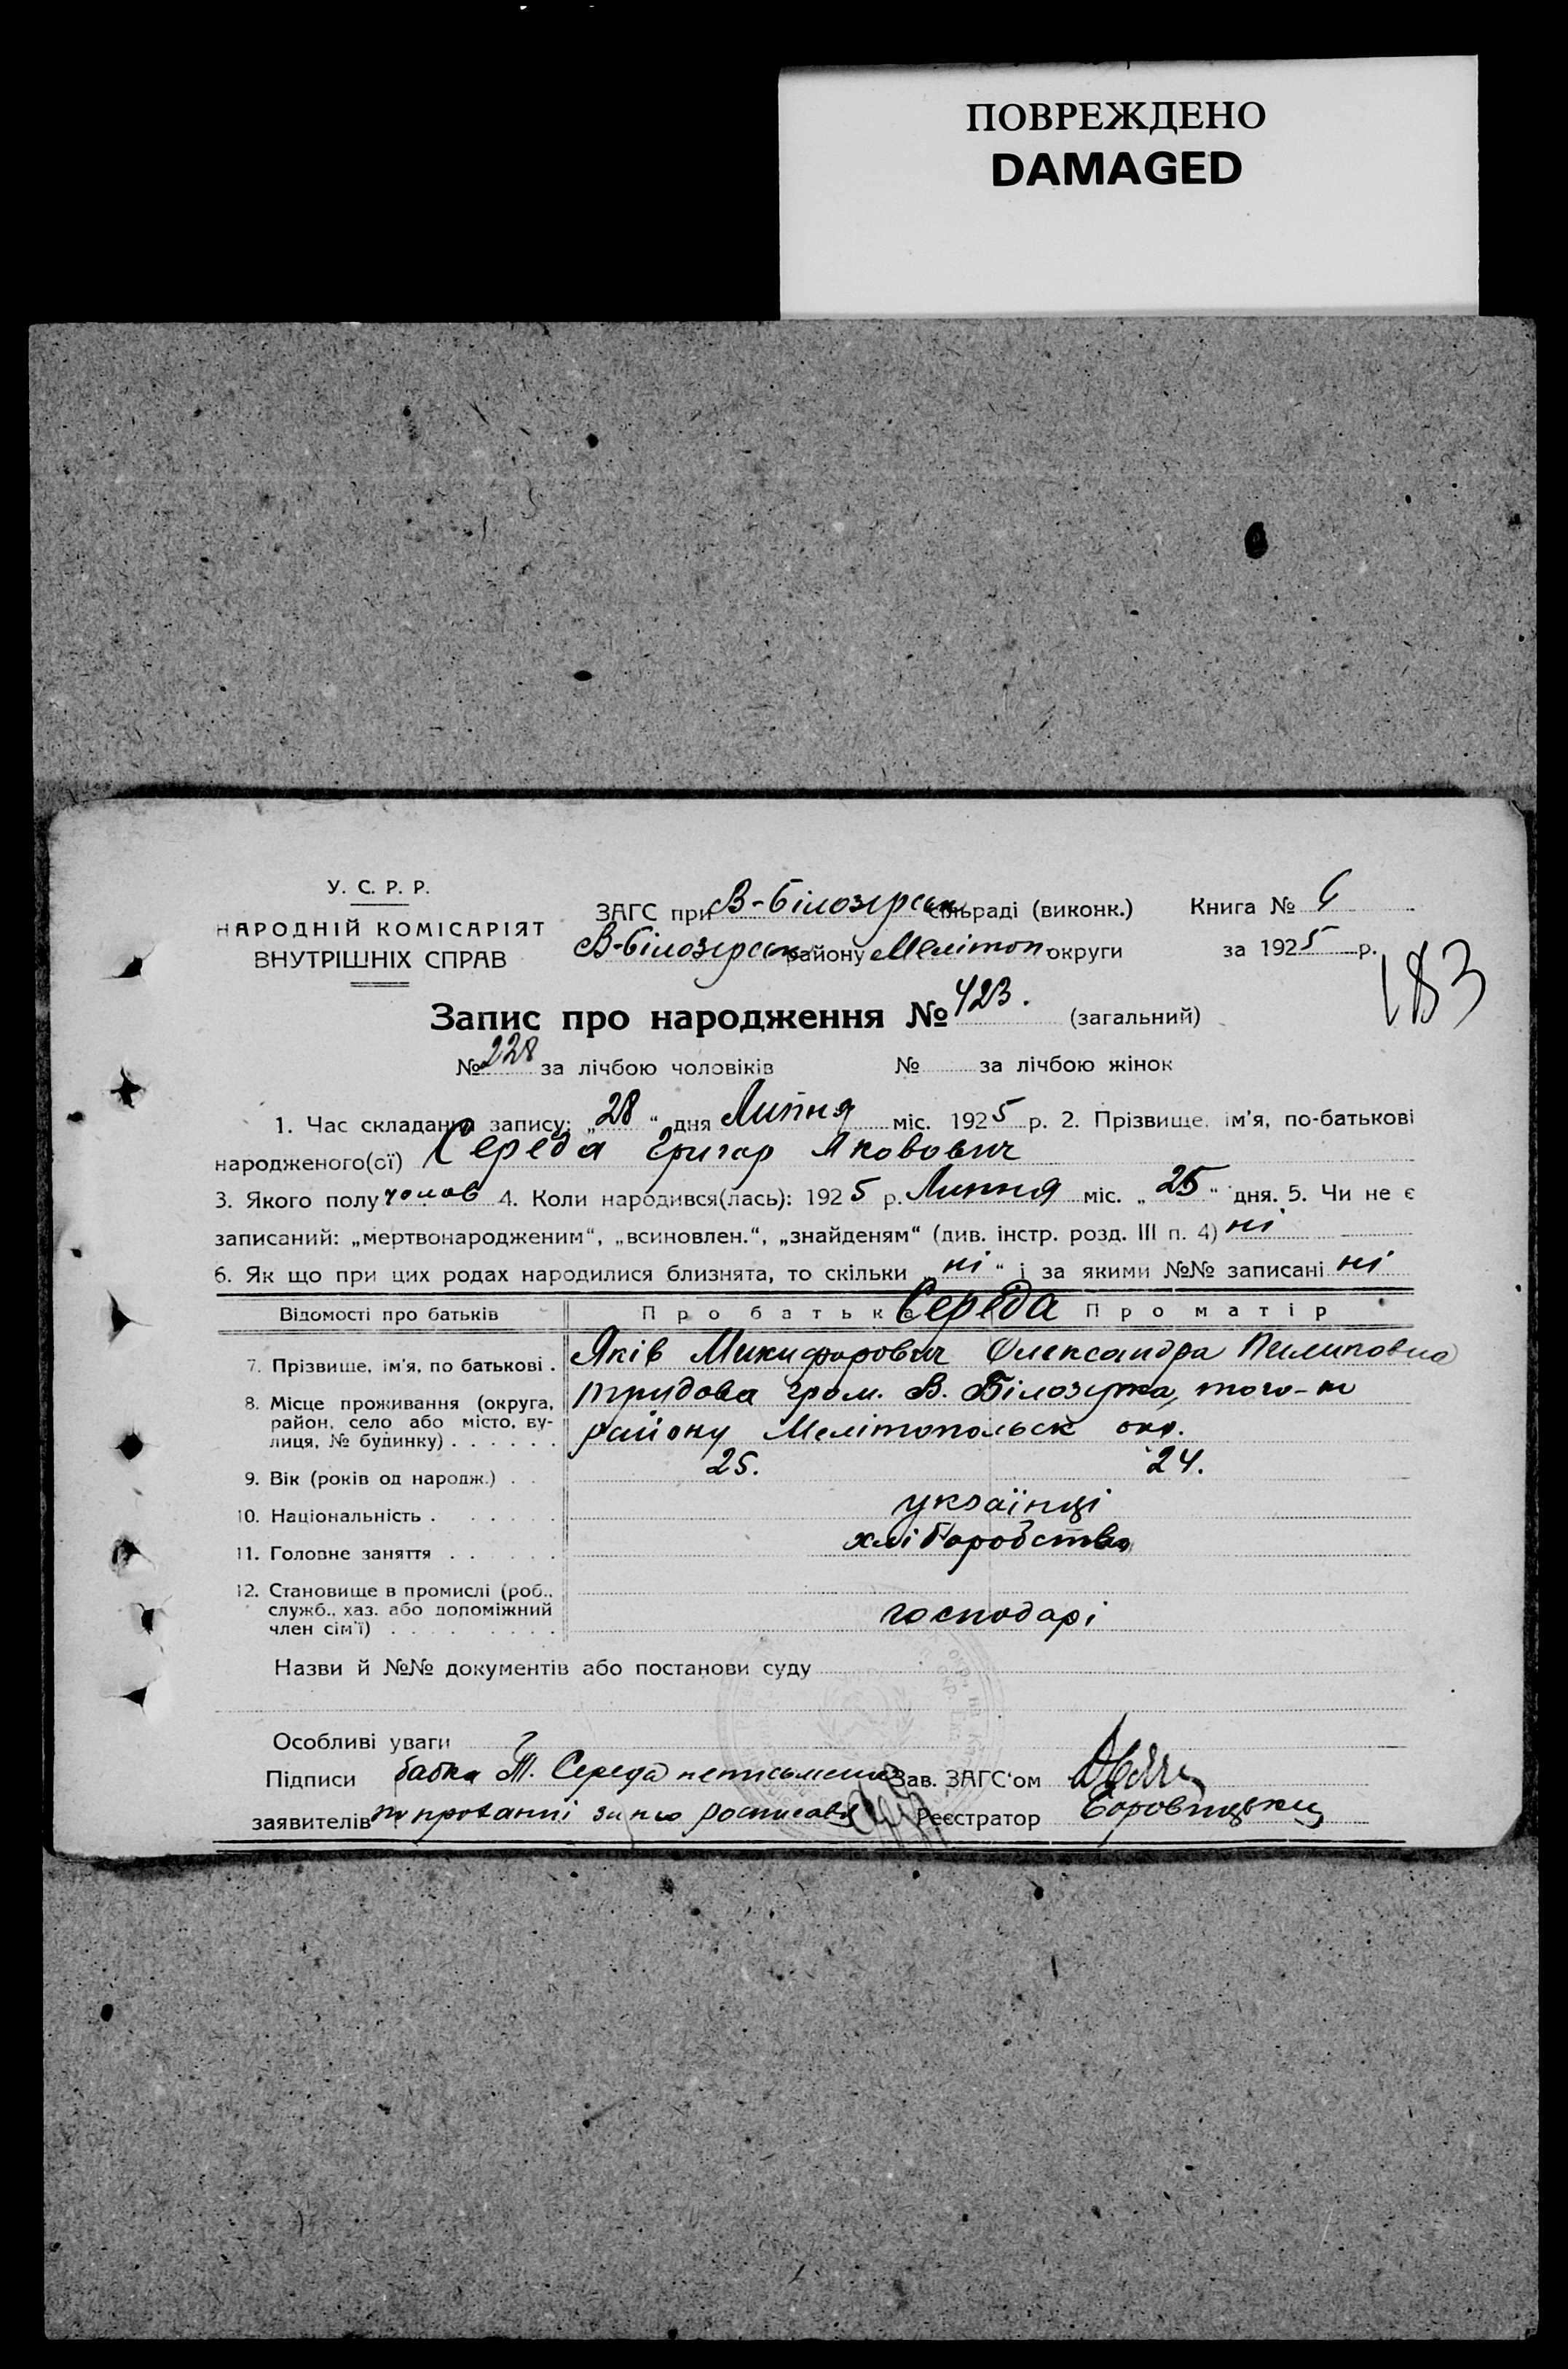 ПОВРЕЖДЕНО
DAMAGED
У. С. Р. Р.
НАРОДНІЙ КОМІСАРІЯТ
ВНУТРІШНІХ СПРАВ
ЗАГС при В-Білозерськ сільраді (виконк.)
В-Білозерськ району Меліттоп. округи
Книга № 6
за 1925 р.
183
Запис про народження № 423. (загальний)
№ 228 за лічбою чоловіків № за лічбою жінок
1. Час складання запису: „28“ дня Липня міс. 1925 р. 2. Прізвище, ім'я, по-батькові
народженого(ої) Середа Григор Якович
3. Якого полу чолов 4. Коли народився(лась): 1925 р. Липня міс. „25“ дня. 5. Чи не є
записаний: „мертвонародженим“, „всиновлен.“, „знайденям“ (див. інстр. розд. III п. 4) ні
6. Як що при цих родах народилися близнята, то скільки „ні“ і за якими №№ записані ні
Відомості про батьків Про батька Середа Про матір
7. Прізвище, ім'я, по батькові . Яків Микифорович Олександра Пилиповна
8. Місце проживання (округа, район, село або місто, вулиця, № будинку) . . . . . . трудова гром. В. Білозерка, того-ж
району Мелітопольськ окр.
9. Вік (років од народж.) . . 25. 24.
10. Національність . . . . . . українці
11. Головне заняття . . . . . . хліборобство
12. Становище в промислі (роб., служб., хаз. або допоміжний член сім'ї) . . . . . . . . господарі
Назви й №№ документів або постанови суду
Особливі уваги
Підписи бабка Т. Середа неписьмена Зав. ЗАГС'ом
заявителів по проханні за нею росписався Реєстратор